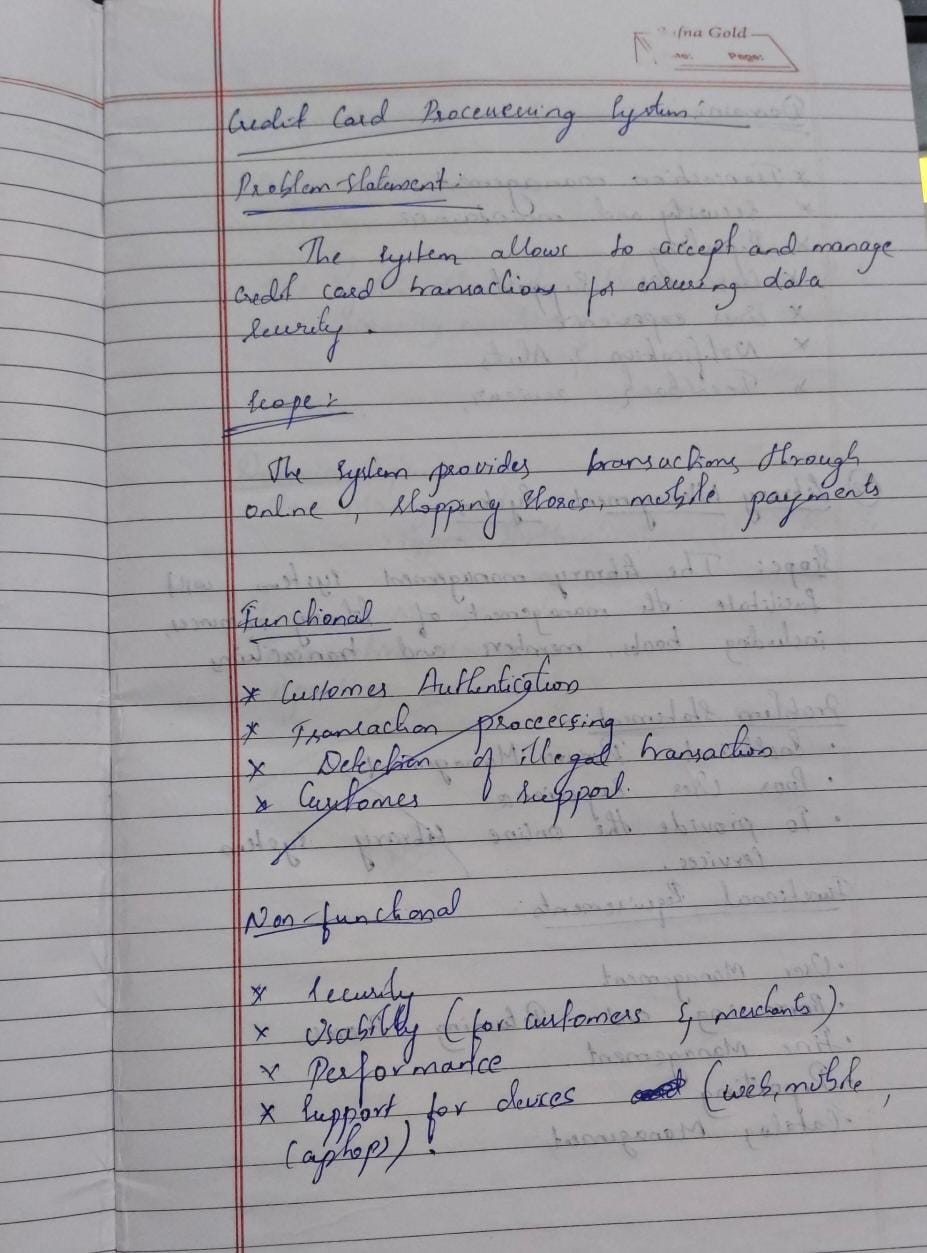 fna Gold
Page:
Credit Card Processing System:
Problem Statement:
The system allows to accept and manage
credit card transactions for ensuring data
security.
Scope:
The system provides transactions through
online, shopping stores, mobile payments
Functional
* Customer Authentication
* Transaction processing
* Detection of illegal transaction
* Customer support.
Non-functional
* Security
* Usability (for customers & merchants)
* Performance
* Support for devices (web, mobile,
laptops).